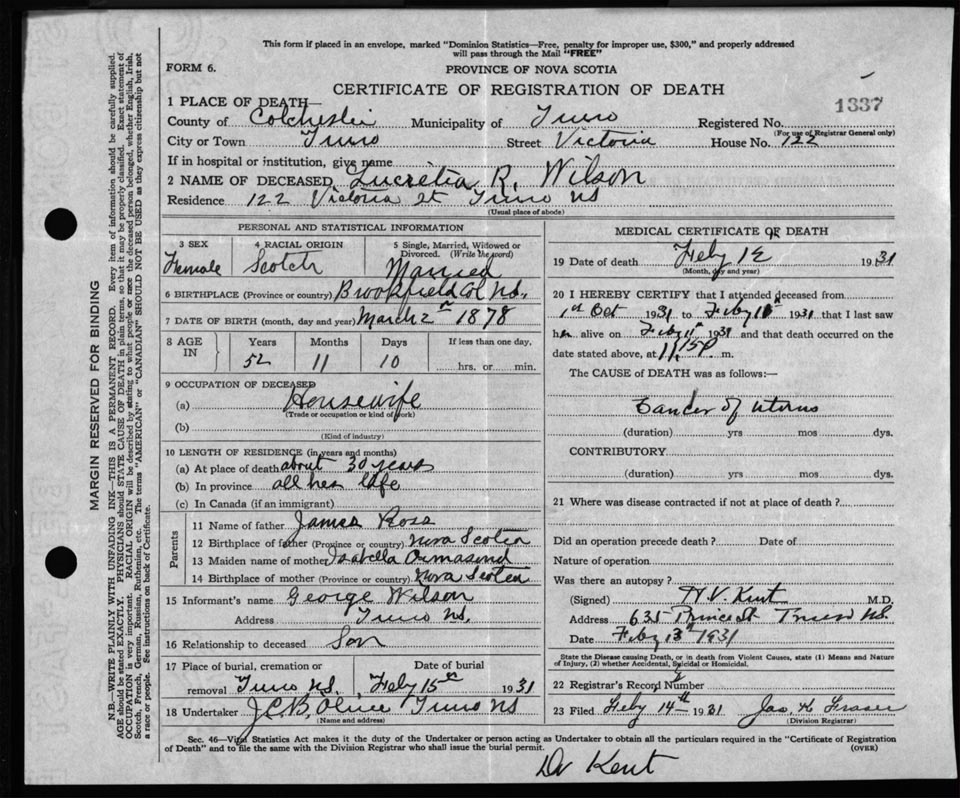 This form if placed in an envelope, marked "Dominion Statistics—Free, penalty for improper use, $300," and properly addressed
will pass through the Mail "FREE"
FORM 6.
PROVINCE OF NOVA SCOTIA
CERTIFICATE OF REGISTRATION OF DEATH
1337
1 PLACE OF DEATH—
County of Colchester Municipality of Truro Registered No.
(For use of Registrar General only)
City or Town Truro Street Victoria House No. 122
If in hospital or institution, give name
2 NAME OF DECEASED Lucretia R. Wilson
Residence 122 Victoria St Truro NS
(Usual place of abode)
PERSONAL AND STATISTICAL INFORMATION
3 SEX Female
4 RACIAL ORIGIN Scotch
5 Single, Married, Widowed or Divorced. (Write the word) Married
6 BIRTHPLACE (Province or country) Brookfield Col NS.
7 DATE OF BIRTH (month, day and year) March 2nd 1878
8 AGE IN
Years Months Days If less than one day,
52 11 10 hrs. or min.
9 OCCUPATION OF DECEASED
(a) Housewife
(Trade or occupation or kind of work)
(b)
(Kind of industry)
10 LENGTH OF RESIDENCE (in years and months)
(a) At place of death about 30 years
(b) In province all her life
(c) In Canada (if an immigrant)
Parents
11 Name of father James Ross
12 Birthplace of father (Province or country) Nova Scotia
13 Maiden name of mother Isabella
14 Birthplace of mother (Province or country) Nova Scotia
15 Informant's name George Wilson
Address Truro NS.
16 Relationship to deceased Son
17 Place of burial, cremation or removal Truro NS.
Date of burial Feby 15th 1931
18 Undertaker J.C.B. Truro NS
(Name and address)
MEDICAL CERTIFICATE OF DEATH
19 Date of death Feby 12 1931
(Month, day and year)
20 I HEREBY CERTIFY that I attended deceased from
1st Oct 1931 to Feby 1931 that I last saw
her alive on Feby 11th 1931 and that death occurred on
date stated above, at 11.15 P m.
The CAUSE of DEATH was as follows:—
Cancer of uterus
(duration) yrs mos dys.
CONTRIBUTORY
(duration) yrs mos dys.
21 Where was disease contracted if not at place of death?
Did an operation precede death? Date of
Nature of operation
Was there an autopsy?
(Signed) H.V. Kent M.D.
Address 635 Prince St Truro NS.
Date Feby 13th 1931
State the Disease causing Death, or in death from Violent Causes, state (1) Means and Nature
of Injury, (2) whether Accidental, Suicidal or Homicidal.
22 Registrar's Record Number
23 Filed Feby 14th 1931 Jas. K Fraser
(Division Registrar)
Sec. 46—Vital Statistics Act makes it the duty of the Undertaker or person acting as Undertaker to obtain all the particulars required in the "Certificate of Registration
of Death" and to file the same with the Division Registrar who shall issue the burial permit. (OVER)
Dr Kent
MARGIN RESERVED FOR BINDING
N.B.—WRITE PLAINLY WITH UNFADING INK—THIS IS A PERMANENT RECORD. Every item of information should be carefully supplied.
AGE should be stated EXACTLY. PHYSICIANS should STATE CAUSE OF DEATH in plain terms, so that it may be properly classified. Exact statement of
OCCUPATION is very important. RACIAL ORIGIN will be described by stating to what people or race the deceased person belonged, whether English, Irish,
Scotch, French, German, Russian, Ruthenian, etc. The terms "AMERICAN" or "CANADIAN" SHOULD NOT BE USED as they express citizenship but not
a race or people. See instructions on back of Certificate.